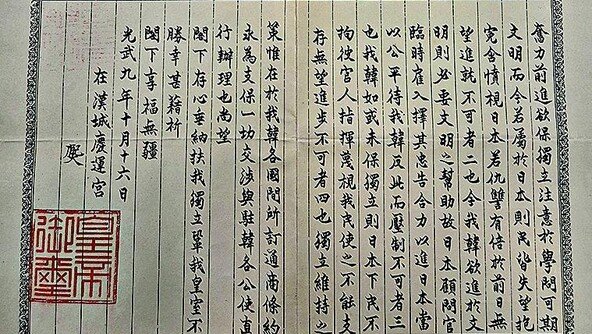 奮力前進欲保獨立注意於學問可期
文明而今若屬於日本則民皆失望抱
寃含憤視日本若仇讐有倍於前日無
望進就不可者二也今我韓欲進於文
明則必要文明之幫助故日本顧問官
臨時雇入擇其忠告合力以進日本當
以公平待我韓反此而壓制不可者三
也我韓如或未保獨立則日本下民不
拘徙官人指揮蔑視我民使之不能支
存無望進步不可者四也獨立維持之
策惟在於我韓各國間所訂通商條約
永為支保一切交涉與駐韓各公使直
行辦理也尚望
閣下存心垂納扶我獨立鞏我皇室不
勝幸甚藉祈
閣下享福無疆
光武九年十月十六日
在漢城慶運宮
熙
皇帝
御璽